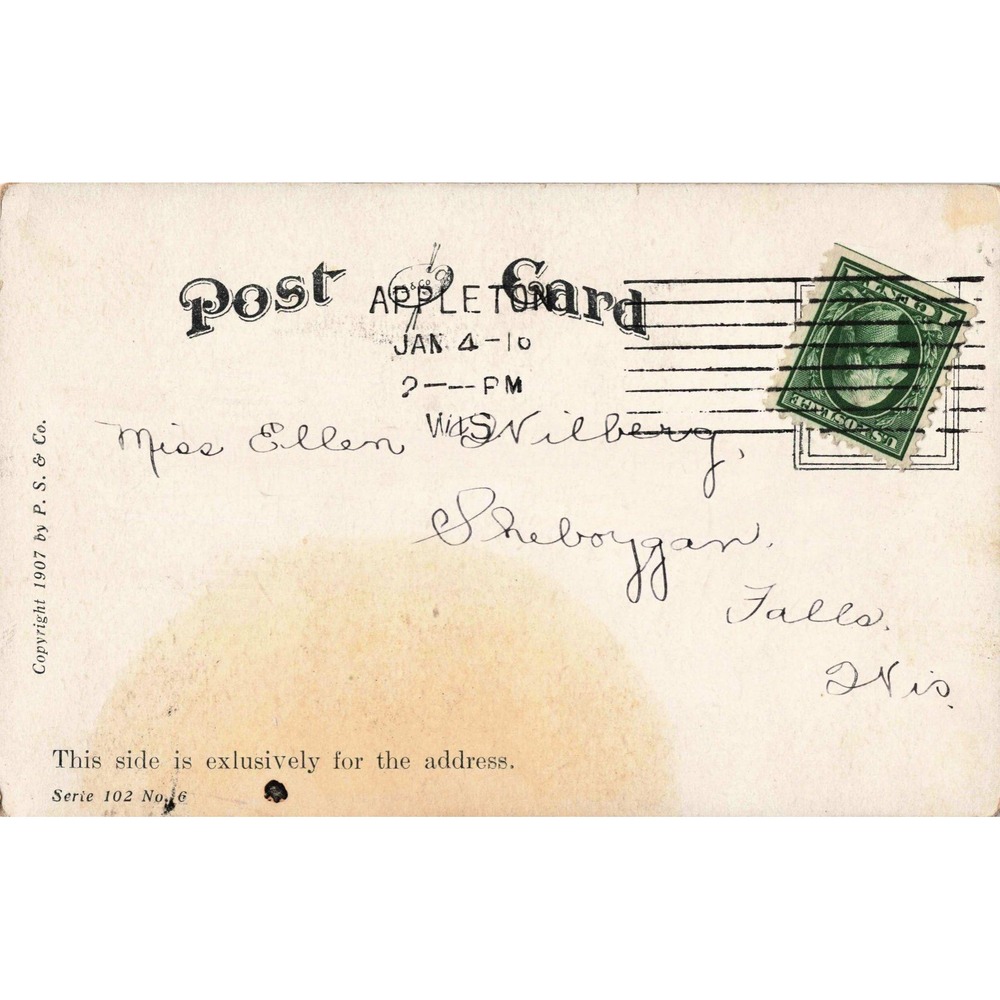 Post Card
APPLETON
JAN 4-10
2 — PM
WIS
Miss Ellen Wilberg,
Sheboygan.
Falls.
Wis.
Copyright 1907 by P. S. & Co.
This side is exlusively for the address.
Serie 102 No. 6